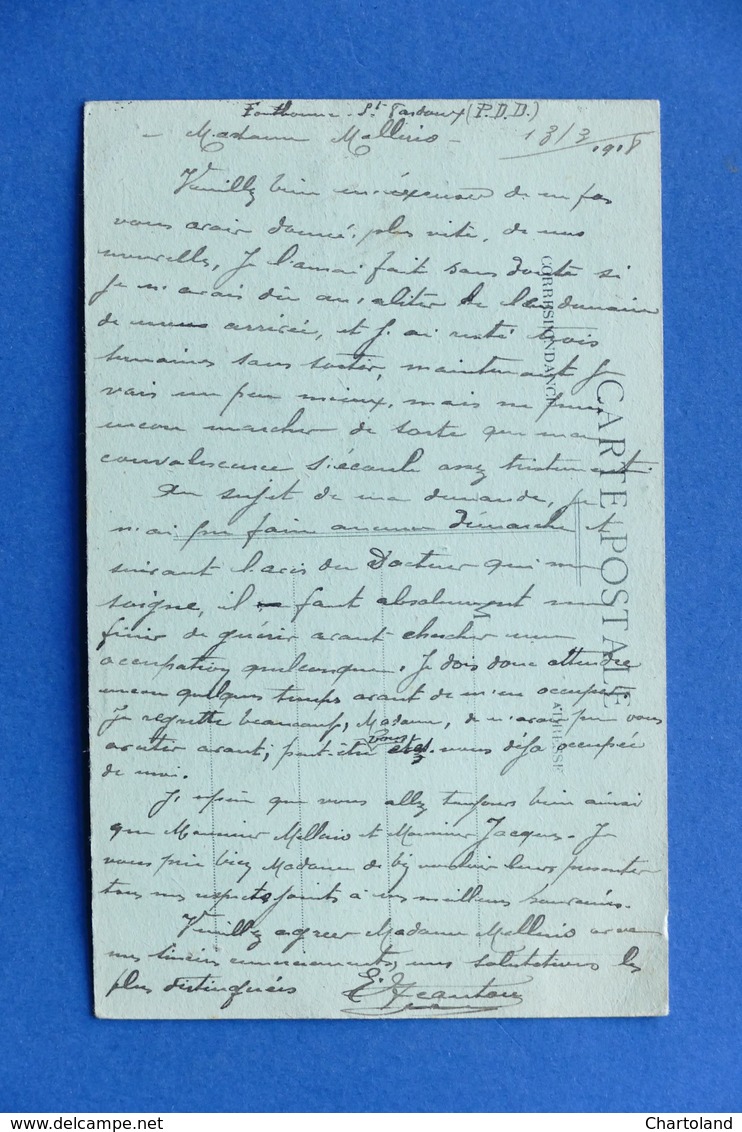 St (P.D.D.)
- Madame Mellerio - 13/3 1918
Veuillez bien m'excuser de ne pas
vous avoir donné, plus vite, de mes
nouvelles, Je l'aurai fait sans doute si
Je n'avais dû m'aliter le lendemain
de mon arrivée, et J'ai resté trois
semaines sans sortir, maintenant Je
vais un peu mieux, mais ne puis
encore marcher de sorte que ma
convalescence s'écoule assez tristement.
Au sujet de ma demande, Je
n'ai pu faire aucune démarche et
suivant l'avis du Docteur qui me
soigne, il faut absolument me
finir de guérir avant chercher une
occupation quelconque. Je dois donc attendre
encore quelques temps avant de m'en occuper.
Je regrette beaucoup, Madame, de n'avoir pu vous
avant, peut-être vous déjà occupée
de moi.
J'espère que vous allez toujours bien ainsi
que Monsieur Mellerio et Monsieur Jacques. Je
vous prie bien Madame de bien vouloir leurs présenter
tous mes respects joints à mes meilleurs souvenirs.
Veuillez agréer Madame Mellerio avec
mes sincères remerciements, mes salutations les
plus distinguées
CARTE POSTALE
CORRESPONDANCE
ADRESSE
Chartoland